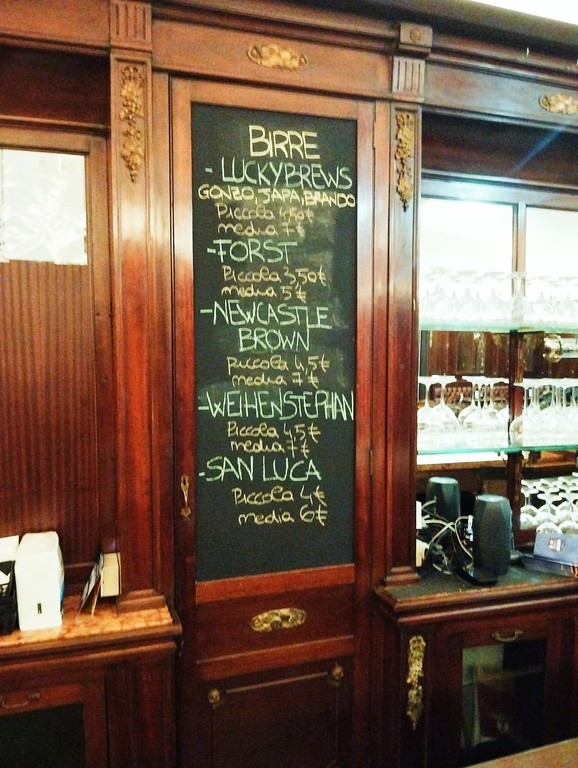 BIRRE
- LUCKYBREWS
GONZO, JAPA, BRANDO
Piccola 4,50€
media 7€
-FORST
Piccola 3,50€
media 5€
-NEWCASTLE
BROWN
Piccola 4,5€
media 7€
-WEIHENSTEPHAN
Piccola 4,5€
media 7€
-SAN LUCA
Piccola 4€
media 6€